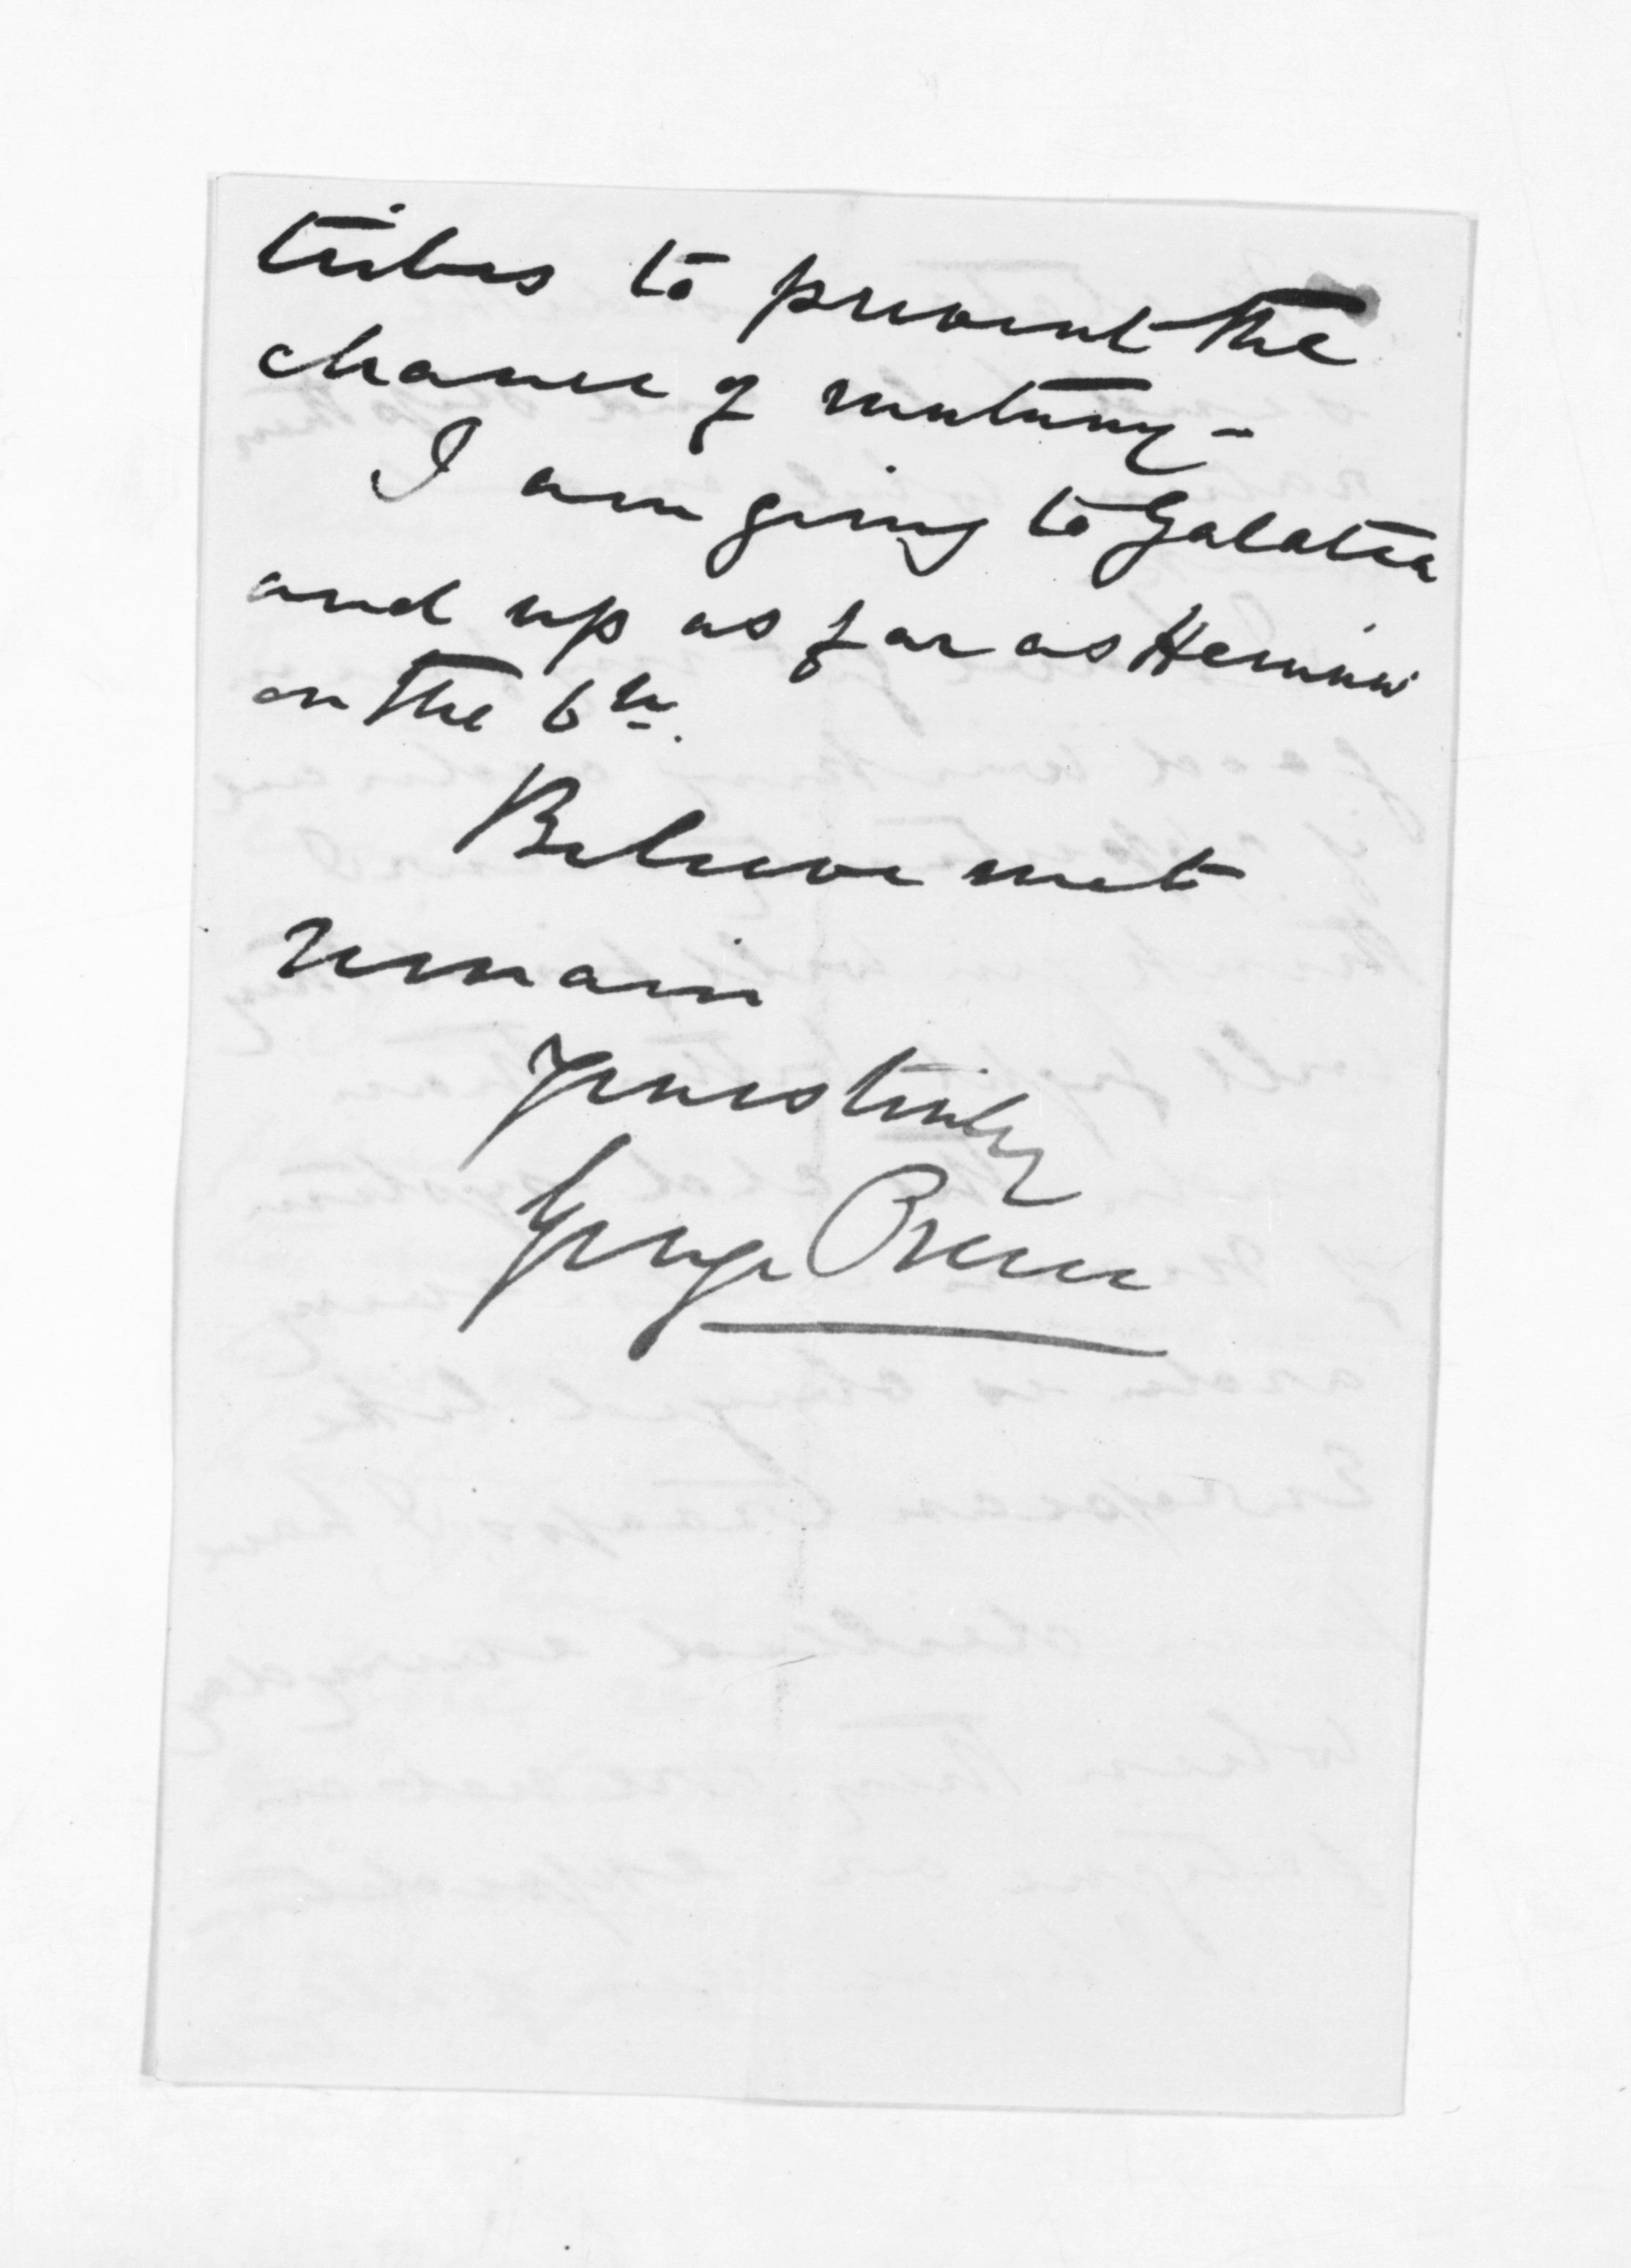 tribes to prevent the
chance of mutiny -
I am going to Galatea
and up as far as Heruiwi
on the 6th.
Believe me to
remain
Yours truly
George Preece